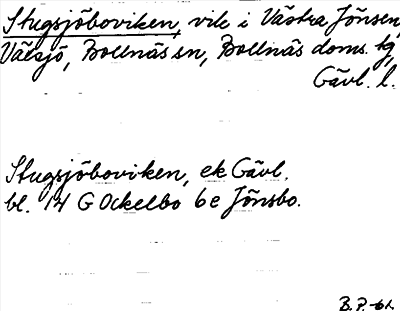 Stugsjöboviken, vik i Västra Jönsen,
Växsjö, Bollnäs sn, Bollnäs doms. tg,
Gävl. l.
Stugsjöboviken, ek Gävl.
bl. 14 G Ockelbo 6e Jönsbo.
B.P.-61